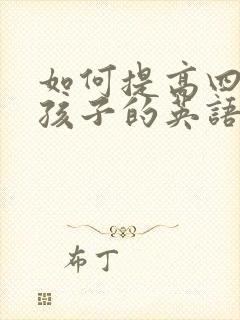 如何提高四
孩子的英語
布丁